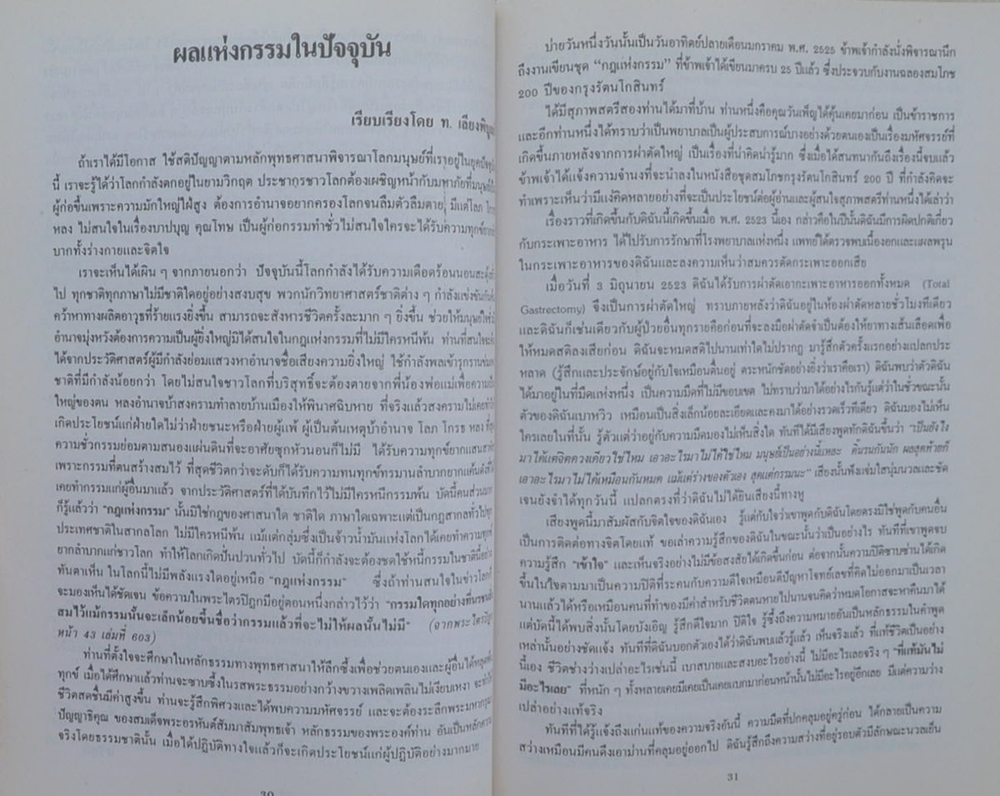 ผลแห่งกรรมในปัจจุบัน
เรียบเรียงโดย ท. เลียงพิบูล
ถ้าเราได้มีโอกาส ใช้สติปัญญาตามหลักพุทธศาสนาพิจารณาโลกมนุษย์ที่เราอยู่ในยุคปัจจุ
นี้ เราจะรู้ได้ว่าโลกกำลังตกอยู่ในยามวิกฤต ประชากรชาวโลกต้องเผชิญหน้ากับมหาภัยที่มนุษย์
ผู้ก่อขึ้นเพราะความมักใหญ่ใฝ่สูง ต้องการอำนาจอยากครองโลกจนลืมตัวลืมตาย มีแต่โลภ โกรธ
หลง ไม่สนใจในเรื่องบาปบุญ คุณโทษ เป็นผู้ก่อกรรมทำชั่วไม่สนใจใครจะได้รับความทุกข์ยาก
บากทั้งร่างกายและจิตใจ
เราจะเห็นได้เผิน ๆ จากภายนอกว่า ปัจจุบันนี้โลกกำลังได้รับความเดือดร้อนนอนสะดุ้ง
ไป ทุกชาติทุกภาษาไม่มีชาติใดอยู่อย่างสงบสุข พวกนักวิทยาศาสตร์ชาติต่าง ๆ กำลังแข่งขันกัน
คว้าหาทางผลิตอาวุธที่ร้ายแรงยิ่งขึ้น สามารถจะสังหารชีวิตครั้งละมาก ๆ ยิ่งขึ้น ช่วยให้มนุษย์
อำนาจมุ่งหวังต้องการความเป็นผู้ยิ่งใหญ่มิได้สนใจในกฎแห่งกรรมที่ไม่มีใครหนีพ้น ท่านที่สนใจ
ได้จากประวัติศาสตร์ผู้มีกำลังย่อมแสวงหาอำนาจชื่อเสียงความยิ่งใหญ่ ใช้กำลังพลเข้ารุกราน
ชาติที่มีกำลังน้อยกว่า โดยไม่สนใจชาวโลกที่บริสุทธิ์จะต้องตายจากพี่น้องพ่อแม่เพื่อความ
ใหญ่ของตน หลงอำนาจบ้าสงครามทำลายบ้านเมืองให้พินาศฉิบหาย ที่จริงแล้วสงครามไม่เคยทำ
เกิดประโยชน์แก่ฝ่ายใดไม่ว่าฝ่ายชนะหรือฝ่ายผู้แพ้ ผู้เป็นต้นเหตุบ้าอำนาจ โลภ โกรธ หลง
ความชั่วกรรมย่อมตามสนองแผ่นดินที่จะอาศัยซุกหัวนอนก็ไม่มี ได้รับความทุกข์ยากแสน
เพราะกรรมที่ตนสร้างสมไว้ ที่สุดชีวิตกว่าจะดับก็ได้รับความทนทุกข์ทรมานลำบากยาก
เคยทำกรรมแก่ผู้อื่นมาแล้ว จากประวัติศาสตร์ที่ได้บันทึกไว้ไม่มีใครหนีกรรมพ้น บัดนี้คนส่วนมาก
ก็รู้แล้วว่า "กฎแห่งกรรม" นั้นมิใช่กฎของศาสนาใด ชาติใด ภาษาใดเฉพาะแต่เป็นกฎสากลทั่วไปทุก
ประเทศชาติในสากลโลก ไม่มีใครหนีพ้น แม้แต่กลุ่มซึ่งเป็นจ้าวน้ำมันแห่งโลกได้เคยทำความทุกข์
ยากลำบากแก่ชาวโลก ทำให้โลกเกิดปั่นป่วนทั่วไป บัดนี้ก็กำลังจะต้องชดใช้หนี้กรรมในชาตินี้อย่าง
ทันตาเห็น ในโลกนี้ไม่มีพลังแรงใดอยู่เหนือ "กฎแห่งกรรม" ซึ่งถ้าท่านสนใจในข่าวโลก
จะมองเห็นได้ชัดเจน ข้อความในพระไตรปิฎกมีอยู่ตอนหนึ่งกล่าวไว้ว่า "กรรมใดทุกอย่างที่นรชน
สมไว้แม้กรรมนั้นจะเล็กน้อยขึ้นชื่อว่ากรรมแล้วที่จะไม่ให้ผลนั้นไม่มี" (จากพระไตรปิฎก
หน้า 43 เล่มที่ 603)
ท่านที่ตั้งใจจะศึกษาในหลักธรรมทางพุทธศาสนาให้ลึกซึ้งเพื่อช่วยตนเองและผู้อื่นให้หลุดพ้น
ทุกข์ เมื่อได้ศึกษาแล้วท่านจะซาบซึ้งในรสพระธรรมอย่างกว้างขวางเพลิดเพลินไม่เงียบเหงา จะทำให้
ชีวิตสดชื่นมีค่าสูงขึ้น ท่านจะรู้สึกพิศวงและได้พบความมหัศจรรย์ และจะต้องระลึกพระมหากรุณา
ปัญญาธิคุณ ของสมเด็จพระอรหันต์สัมมาสัมพุทธเจ้า หลักธรรมของพระองค์ท่าน อันเป็นหลักความ
จริงโดยธรรมชาตินั้น เมื่อได้ปฏิบัติทางใจแล้วก็จะเกิดประโยชน์แก่ผู้ปฏิบัติอย่างมากมาย
30
บ่ายวันหนึ่งวันนั้นเป็นวันอาทิตย์ปลายเดือนมกราคม พ.ศ. 2525 ข้าพเจ้ากำลังนั่งพิจารณานึก
ถึงงานเขียนชุด "กฎแห่งกรรม" ที่ข้าพเจ้าได้เขียนมาครบ 25 ปีแล้ว ซึ่งประจวบกับงานฉลองสมโภช
200 ปีของกรุงรัตนโกสินทร์
ได้มีสุภาพสตรีสองท่านได้มาที่บ้าน ท่านหนึ่งคือคุณวันเพ็ญได้คุ้นเคยมาก่อน เป็นข้าราชการ
และอีกท่านหนึ่งได้ทราบว่าเป็นพยาบาลเป็นผู้ประสบการณ์บางอย่างด้วยตนเองเป็นเรื่องมหัศจรรย์ที่
เกิดขึ้นภายหลังจากการผ่าตัดใหญ่ เป็นเรื่องที่น่าคิดน่ารู้มาก ซึ่งเมื่อได้สนทนากันถึงเรื่องนี้จบแล้ว
ข้าพเจ้าได้แจ้งความจำนงที่จะนำลงในหนังสือชุดสมโภชกรุงรัตนโกสินทร์ 200 ปี ที่กำลังคิดจะ
ทำเพราะเห็นว่ามีแง่คิดหลายอย่างที่จะเป็นประโยชน์ต่อผู้อ่านและผู้สนใจสุภาพสตรีท่านหนึ่งได้เล่าว่า
เรื่องราวที่เกิดขึ้นกับดิฉันนี้เกิดขึ้นเมื่อ พ.ศ. 2523 นี้เอง กล่าวคือในปีนั้นดิฉันมีการผิดปกติเกี่ยว
กับกระเพาะอาหาร ได้ไปรับการรักษาที่โรงพยาบาลแห่งหนึ่ง แพทย์ได้ตรวจพบเนื้องอกและแผลพรุน
ในกระเพาะอาหารของดิฉันและลงความเห็นว่าสมควรตัดกระเพาะออกเสีย
เมื่อวันที่ 3 มิถุนายน 2523 ดิฉันได้รับการผ่าตัดเอากระเพาะอาหารออกทั้งหมด (Total
Gastrectomy) จึงเป็นการผ่าตัดใหญ่ ทราบภายหลังว่าดิฉันอยู่ในห้องผ่าตัดหลายชั่วโมงทีเดียว
และดิฉันก็เช่นเดียวกับผู้ป่วยอื่นทุกรายคือก่อนที่จะลงมือผ่าตัดจำเป็นต้องให้ยาทางเส้นเลือดเพื่อ
ให้หมดสติลงเสียก่อน ดิฉันจะหมดสติไปนานเท่าใดไม่ปรากฏ มารู้สึกตัวครั้งแรกอย่างแปลก
หลาด (รู้สึกและประจักษ์อยู่กับใจเหมือนตื่นอยู่ ตระหนักชัดอย่างยิ่งว่าเราคือเรา) ดิฉันพบว่าตัวดิฉัน
ได้มาอยู่ในที่มืดแห่งหนึ่ง เป็นความมืดที่ไม่มีขอบเขต ไม่ทราบว่ามาได้อย่างไรกันรู้แต่ว่าในชั่วขณะนั้น
ตัวของดิฉันเบาหวิว เหมือนเป็นสิ่งเล็กน้อยละเอียดและคงมาได้อย่างรวดเร็วทีเดียว ดิฉันมองไม่เห็น
ใครเลยในที่นั้น รู้ตัวแต่ว่าอยู่กับความมืดมองไม่เห็นสิ่งใด ทันทีได้มีเสียงพูดทักดิฉันขึ้นว่า "เป็นยังไง
มาได้แต่จิตดวงเดียวใช่ไหม เอาอะไรมาไม่ได้ใช่ไหม มนุษย์เป็นอย่างนี้แหละ ดิ้นรนกันนัก ผลสุดท้ายก็
เอาอะไรมาไม่ได้เหมือนกันหมด แม้แต่ร่างของตัวเอง สุดแต่กรรมนะ" เสียงนั้นฟังแจ่มใสนุ่มนวลและชัด
เจนยังจำได้ทุกวันนี้ แปลกตรงที่ว่าดิฉันไม่ได้ยินเสียงนี้ทางหู
เสียงพูดนี้มาสัมผัสกับจิตใจของดิฉันเอง รู้แต่กับใจว่าเขาพูดกับดิฉันโดยตรงมิใช่พูดกับคนอื่น
เป็นการติดต่อทางจิตโดยแท้ ขอเล่าความรู้สึกของดิฉันในขณะนั้นว่าเป็นอย่างไร ทันทีที่เขาพูดจบ
ความรู้สึก "เข้าใจ" และเห็นจริงอย่างไม่มีข้อสงสัยได้เกิดขึ้นก่อน ต่อจากนั้นความปีติซาบซ่านได้เกิด
ขึ้นในใจตามมาเป็นความปีติที่ระคนกับความดีใจเหมือนดีปัญหาโจทย์เลขที่คิดไม่ออกมาเป็นเวลา
นานแล้วได้หรือเหมือนคนที่ทำของมีค่าสำหรับชีวิตตนหายไปนานจนคิดว่าหมดโอกาสจะหาคืนมาได้
แต่บัดนี้ได้พบสิ่งนั้นโดยบังเอิญ รู้สึกดีใจมาก ปีติใจ รู้ซึ้งถึงความหมายอันเป็นหลักธรรมในคำพูด
เหล่านั้นอย่างชัดแจ้ง ทันทีที่ดิฉันบอกตัวเองได้ว่าดิฉันพบแล้วรู้แล้ว เห็นจริงแล้ว ที่แท้ชีวิตเป็นอย่าง
นี้เอง ชีวิตช่างว่างเปล่าอะไรเช่นนี้ เบาสบายและสงบอะไรอย่างนี้ ไม่มีอะไรเลยจริง ๆ "ที่แท้มันไม่
มีอะไรเลย" ที่หนัก ๆ ทั้งหลายเคยมีเคยเป็นเคยแบกมาก่อนหน้านั้นไม่มีอะไรอยู่อีกเลย มีแต่ความว่าง
เปล่าอย่างแท้จริง
ทันทีที่ได้รู้แจ้งถึงแก่นแท้ของความจริงอันนี้ ความมืดที่ปกคลุมอยู่ครู่ก่อน ได้กลายเป็นความ
สว่างเหมือนมีคนดึงเอาม่านที่คลุมอยู่ออกไป ดิฉันรู้สึกถึงความสว่างที่อยู่รอบตัวมีลักษณะนวลเย็น
31